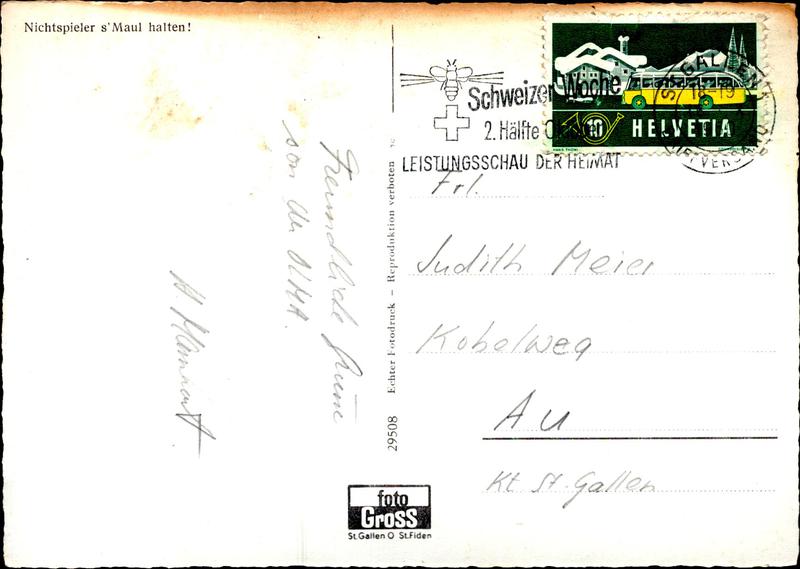 Nichtspieler s'Maul halten!
Freundliche Grüsse
von der OLMA.
Echter Fotodruck – Reproduktion verboten
29508
foto
Gross
St.Gallen O St.Fiden
Schweizer Woche
2. Hälfte
LEISTUNGSSCHAU DER HEIMAT
ST. GALLEN
18-19
10 HELVETIA
Frl.
Judith Meier
Kobelweg
Au
Kt St. Gallen